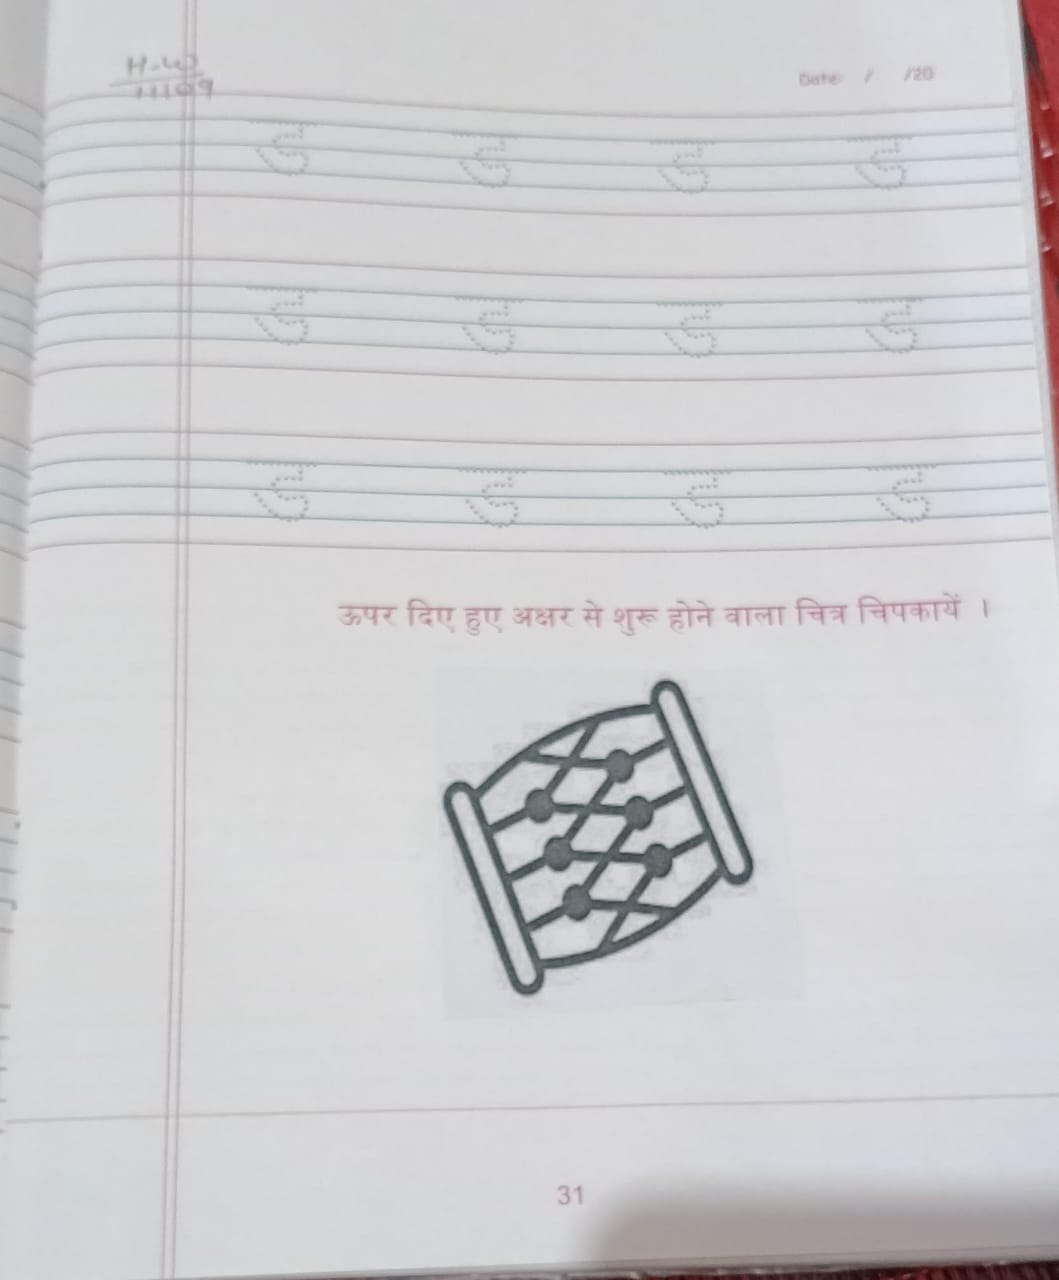 H.W
11109
Date / /20
ड ड ड ड
ड ड ड ड
ड ड ड ड
ऊपर दिए हुए अक्षर से शुरू होने वाला चित्र चिपकायें ।
31